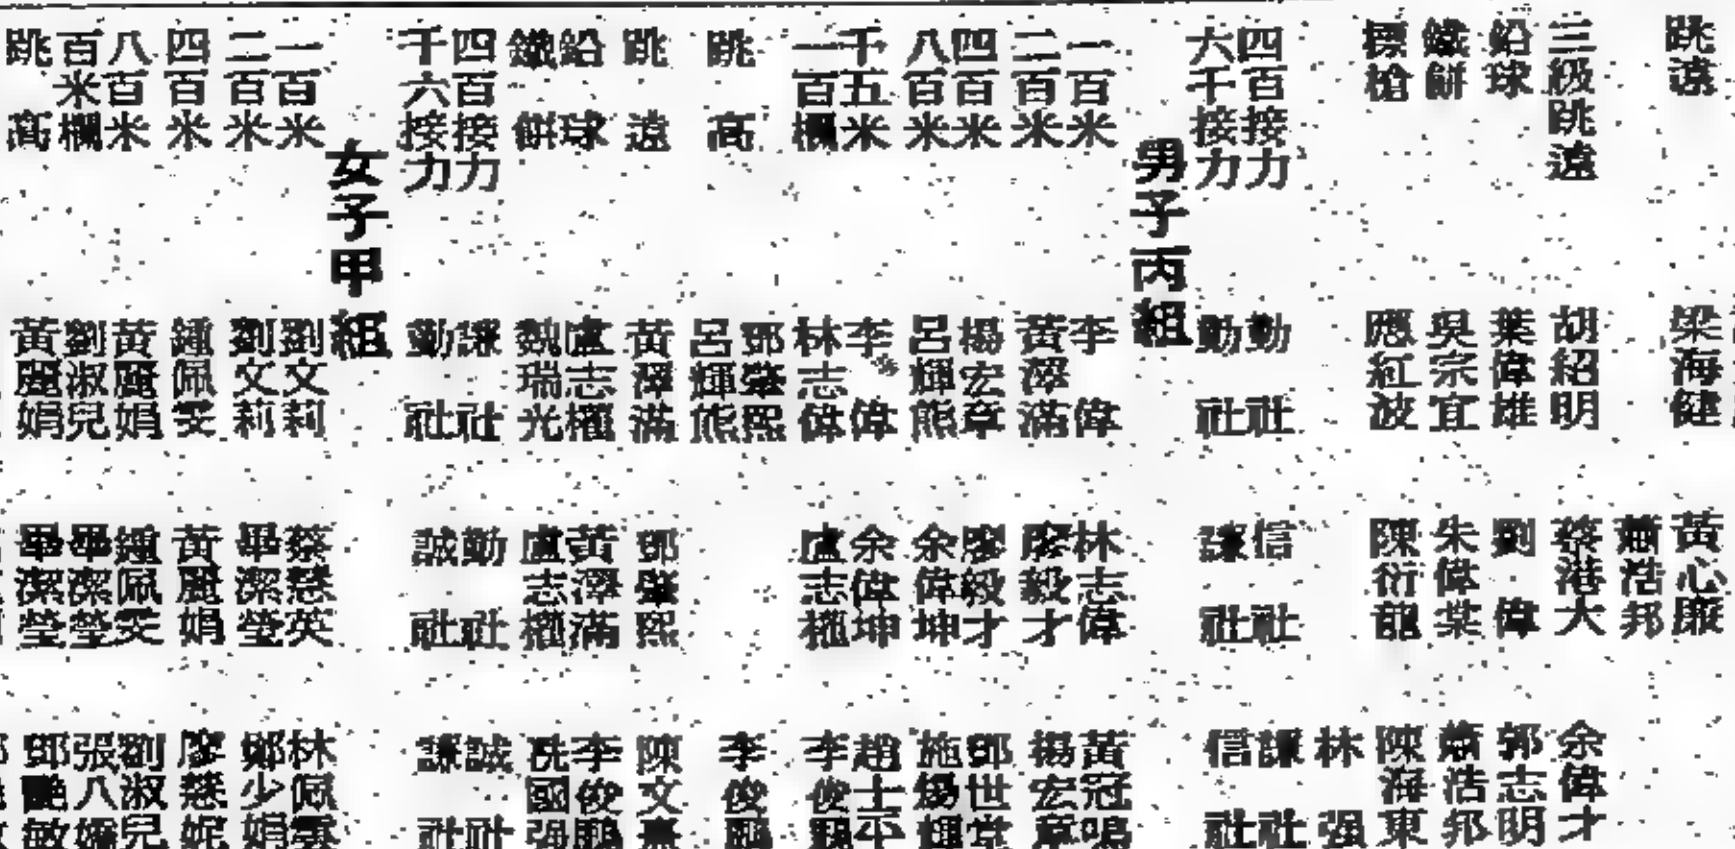 跳遠 梁海健 黃心廉
蕭浩邦
三級跳遠 胡紹明 蔡港大 余偉才
鉛球 葉偉雄 劉偉 郭志明
鐵餅 吳宗宜 朱偉棠 蕭浩邦
標槍 應紅波 陳衍龍 陳海東
林强
四百接力 勤社 信社 謙社
六千接力 勤社 謙社 信社
男子丙組
一百米 李偉 林志偉 黃冠鳴
二百米 黃澤滿 廖毅才 楊宏章
四百米 楊宏章 廖毅才 鄧世堂
八百米 呂輝熊 余偉坤 施楊輝
千五米 李偉 余偉坤 趙士平
一百欄 林志偉 盧志權 李俊鵬
跳高 鄧肇熙 李俊鵬
呂輝熊
跳遠 黃澤滿 鄧肇熙 陳文熹
鉛球 盧志權 黃澤滿 李俊鵬
鐵餅 魏瑞光 盧志權 冼國强
四百接力 謙社 勤社 誠社
千六接力 勤社 誠社 謙社
女子甲組
一百米 劉文莉 蔡慧英 林佩雲
二百米 劉文莉 畢潔瑩 鄭少娟
四百米 鍾佩雯 黃麗娟 廖慧妮
八百米 黃麗娟 鍾佩雯 劉淑兒
百米欄 劉淑兒 畢潔瑩 張八
跳高 黃麗娟 畢潔瑩 鄧艷敏